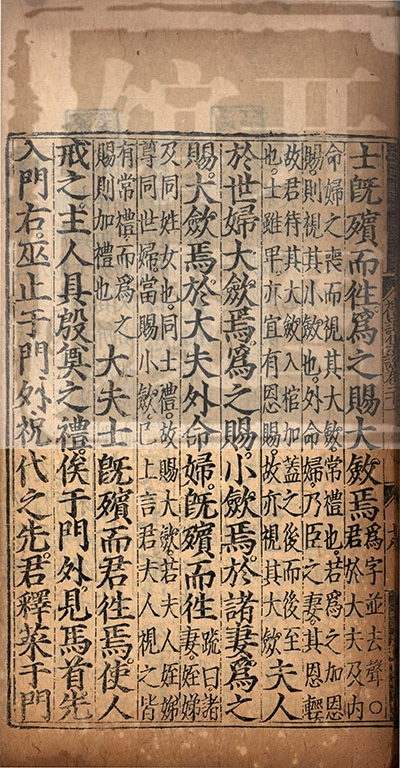 士既殯而徃爲之賜大斂焉爲字並去聲○君於大夫及内
命婦之喪而視其大斂常禮也若爲之加恩
賜則視其小斂也外命婦乃臣之妻其恩輕
故君待其大斂入棺加蓋之後而後至
也士雖畢亦宜有恩賜故亦視其大斂夫人
於世婦大斂焉爲之賜小斂焉於諸妻爲之
賜大斂焉於大夫外命婦既殯而徃疏曰諸妻姪娣
及同姓女也同士禮故賜大斂若夫人姪娣
尊同世婦當賜小斂已上言君夫人視之皆
有常禮而爲之
賜則加禮也大夫士既殯而君徃焉使人
戒之主人具殷奠之禮俟于門外見馬首先
入門右巫止于門外祝代之先君釋菜于門